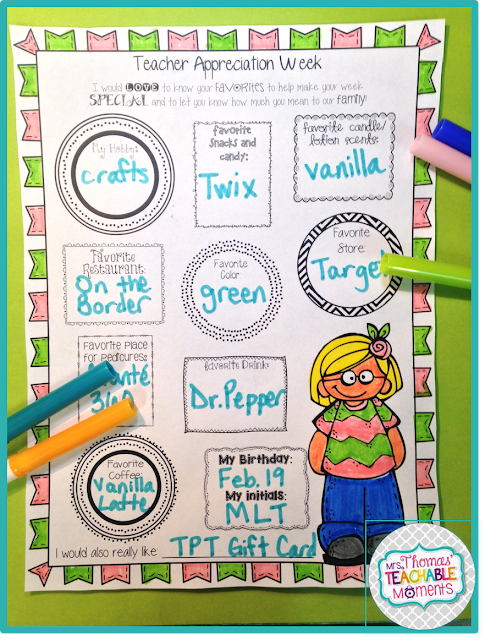 Teacher Appreciation Week
I would LOVE to know your FAVORITES to help make your week
SPECIAL and to let you know how much you mean to our family!
My Hobby:
crafts
favorite
Snacks and
candy:
Twix
favorite candle/
lotion scents:
vanilla
Favorite
Restaurant:
On the
Border
Favorite
Color
green
Favorite
Store:
Target
Favorite Place
for Pedicures:
Favorite Drink:
Dr. Pepper
Favorite
Coffee:
Vanilla
Latte
My Birthday:
Feb. 19
My initials:
MLT
I would also really like
TPT Gift Card
Mrs. Thomas'
TEACHABLE
Moments